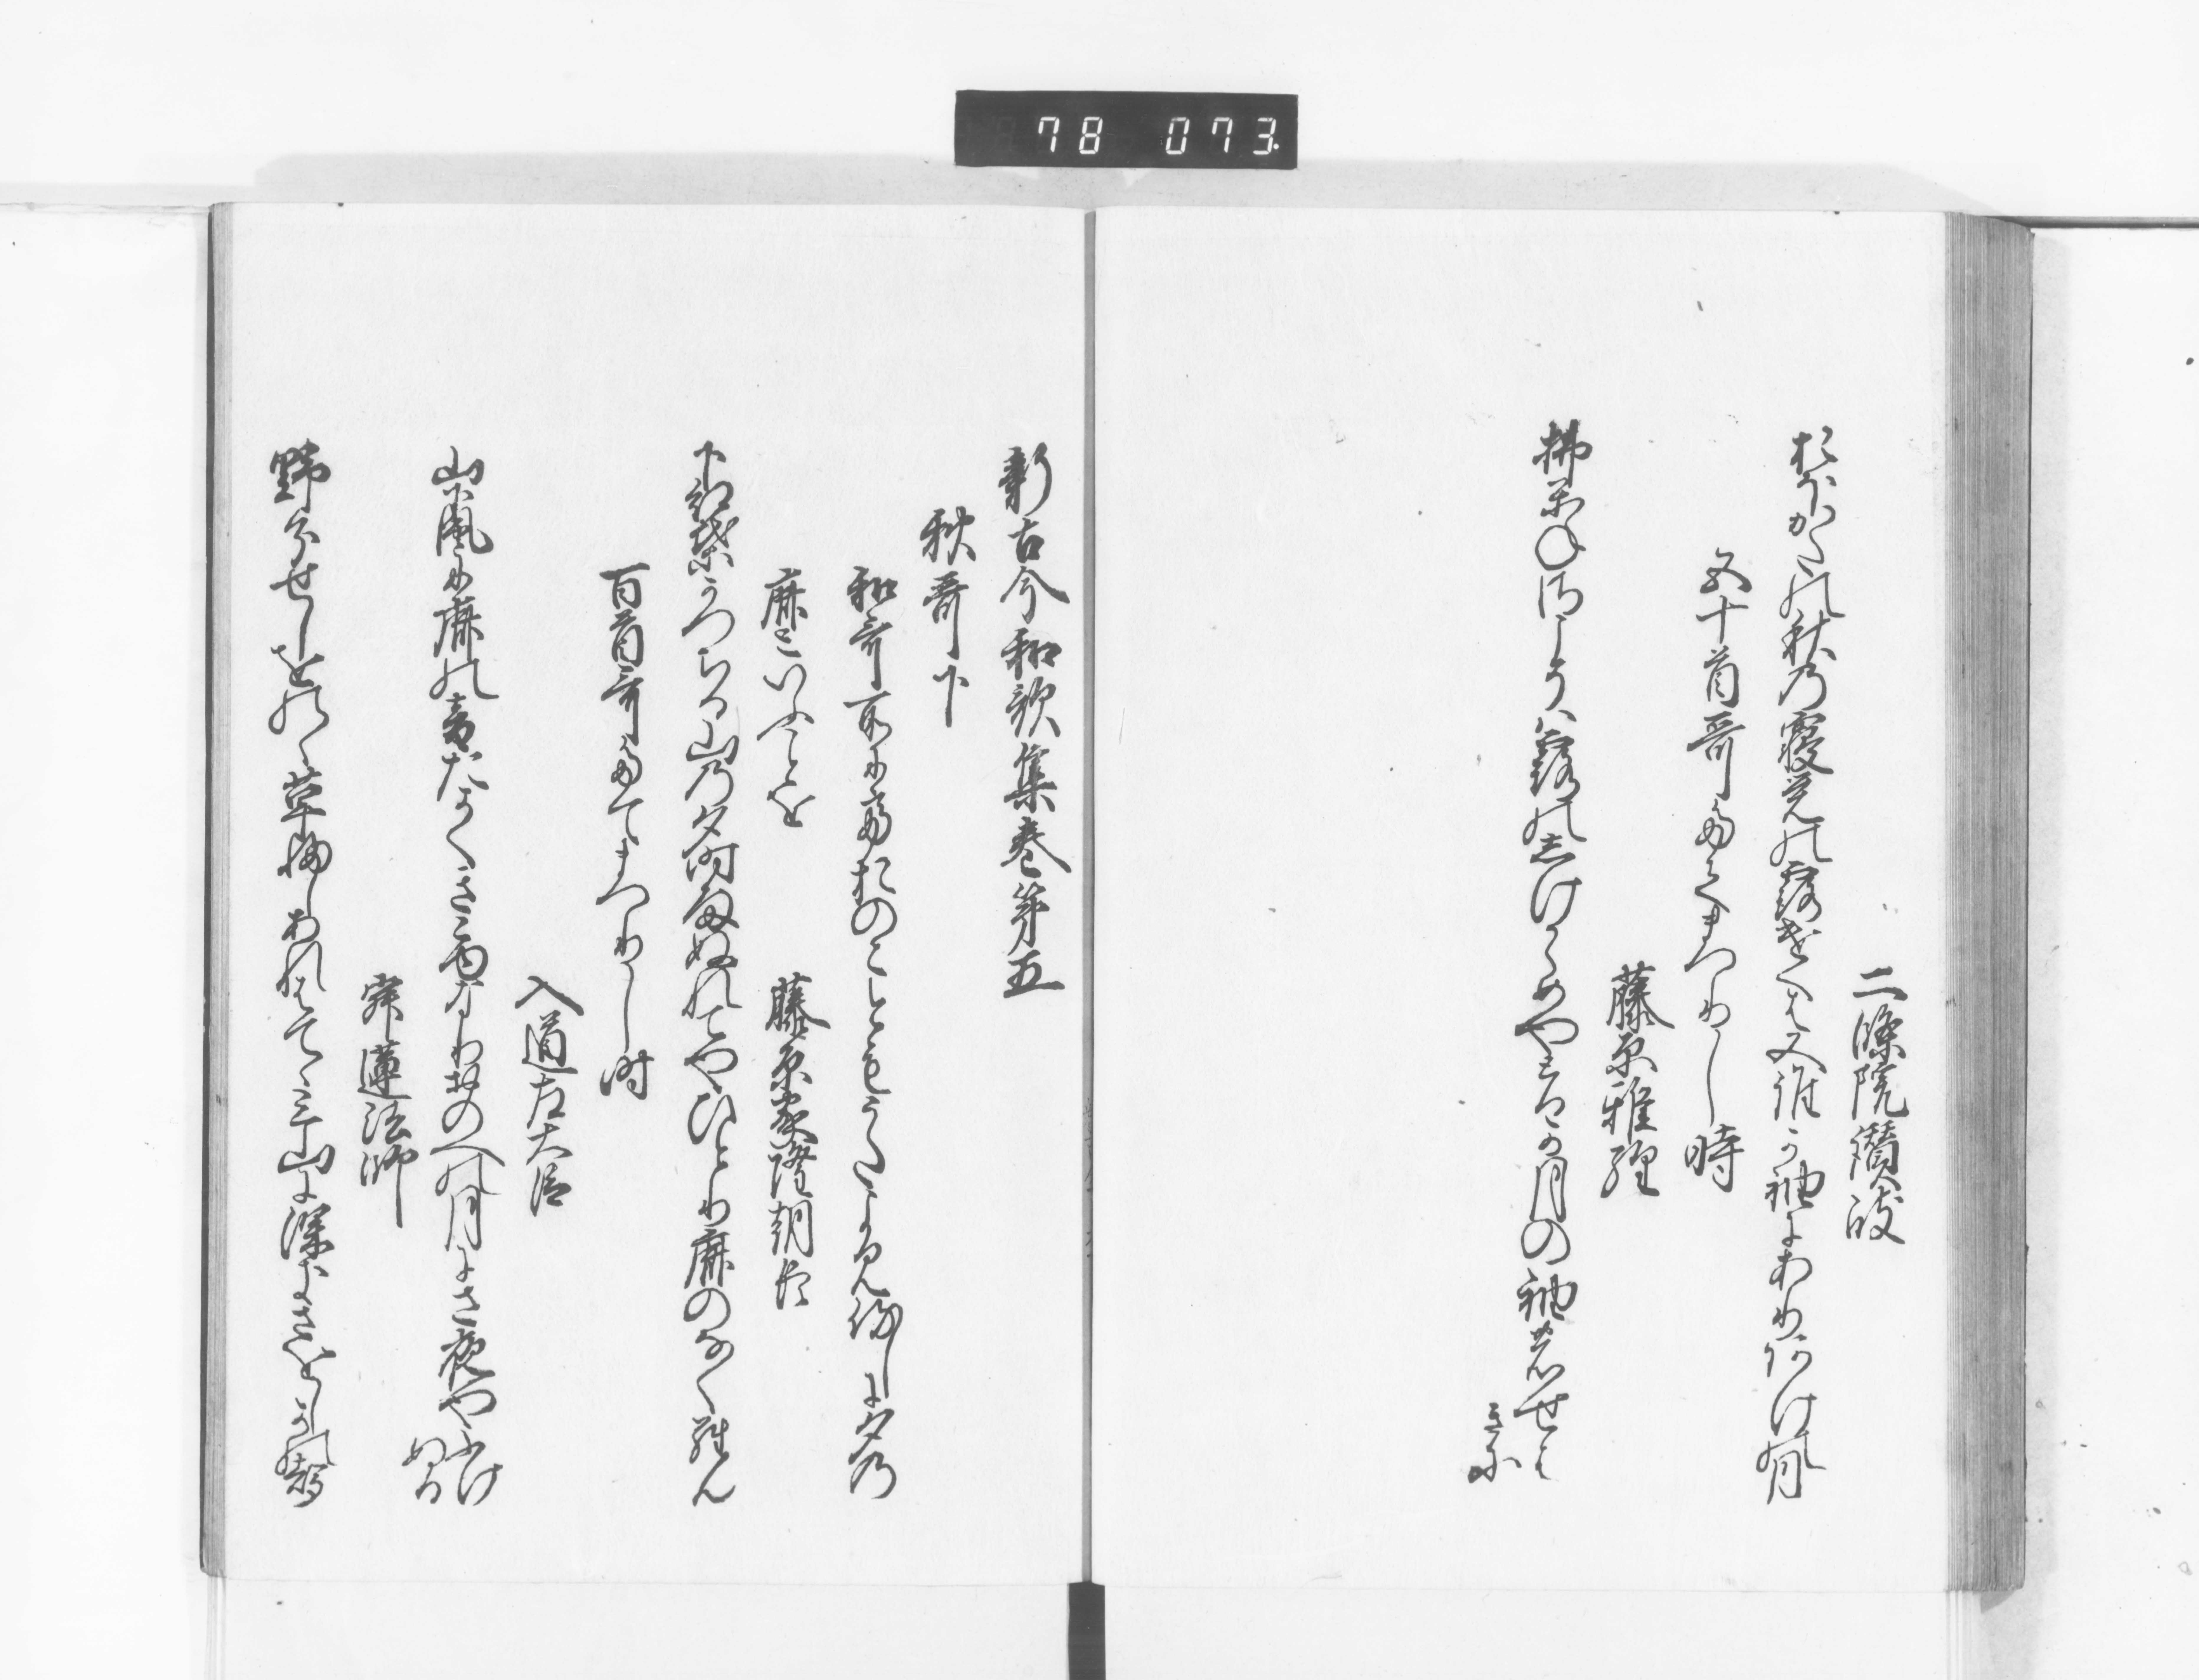 78 073
二條院讃岐
おほかたの秋の寝覚の露けくは又誰か袖にありあけの月
五十首哥たてまつりし時
藤原雅経
拂かねさこそは露のしけからめやとるか月の袖のせは
きに
新古今和歌集巻第五
秋哥下
和哥所にておのこともうたよみ侍しに夕の
鹿といふことを
藤原家隆朝臣
下紅葉かつちる山の夕時雨ぬれてやひとり鹿のなくらん
百首哥たてまつりし時
入道左大臣
山颪に鹿の音たかくきこゆなりおのへの月にさ夜やふけ
ぬる
寂蓮法師
野分せしをのゝ草ふしあれはててみ山に深きさをしかの聲